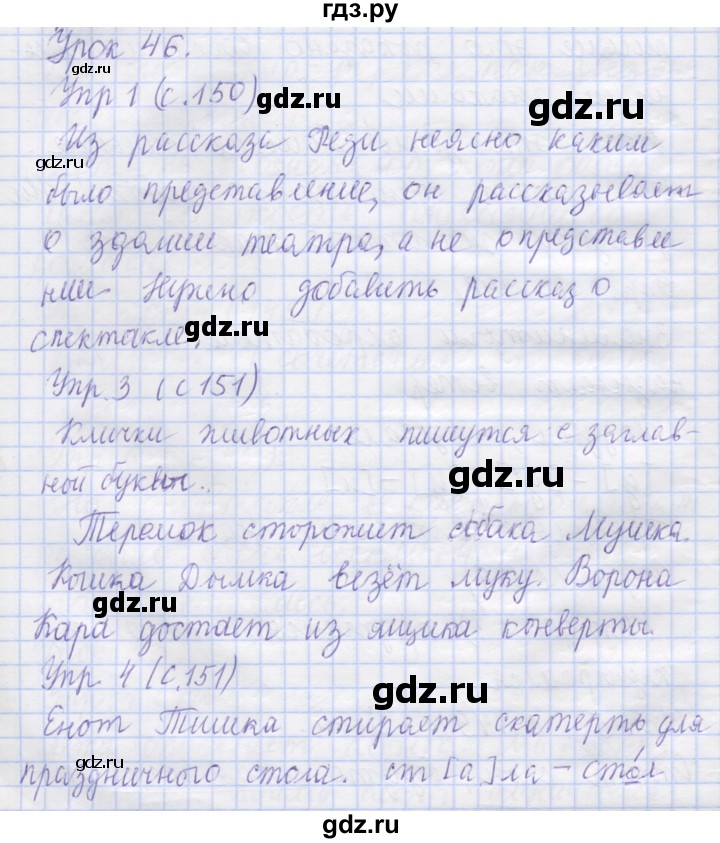 гдз.ру
Урок 46.
gdz.ru
Упр 1 (с.150)
gdz.ru
gdz.ru
Из рассказа Феди неясно каким
gdz.ru
было представление, он рассказывает
о здании театра, а не о представле
нии Нужно добавить рассказ о
спектакле.
gdz.ru
Упр. 3 (с 151)
Клички животных пишутся с заглав-
ной буквы.
gdz.ru
Теремок сторожит собака Мушка.
Кошка Дымка везёт муку. Ворона
gdz.ru
Кара достает из ящика конверты.
Упр. 4 (с.151)
gdz.ru
Енот Тишка стирает скатерть для
gdz.ru
праздничного стола. ст[а]ла – сто́л
gdz.ru